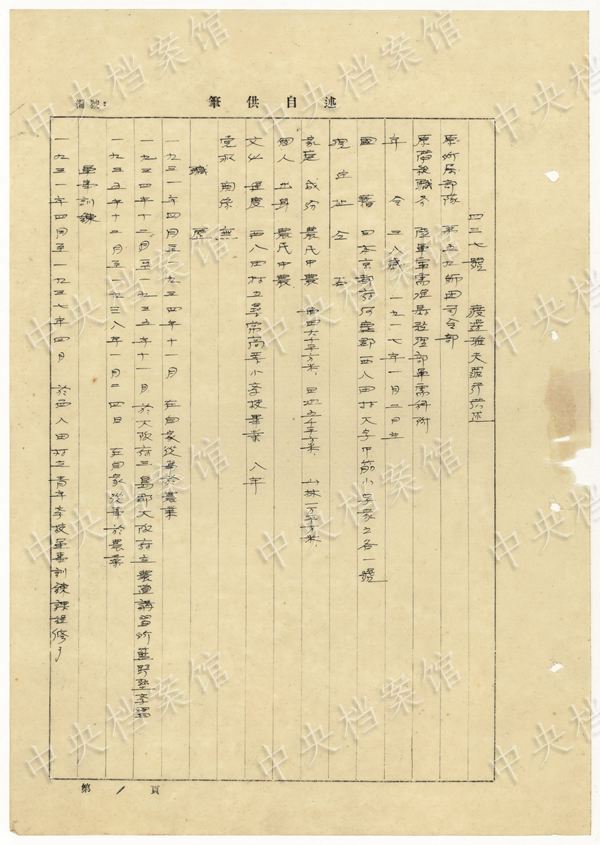 筆供自述
編號：
四三七號 渡邊雅夫罪行供述
原所属部隊 第五九師団司令部
原階級職务 陸軍軍需准尉経理部軍需科附
年令 三八歳 一九一七年一月二日生
國籍 日本京都府何鹿郡西八田村大字中筋小字
現住址 仝右
家庭成份 農民中農
山林一万平方米
個人出身 農民中農
文化程度 西八田村立尋常高等小李校畢業 八年
党派関係 無
職歴
一九三一年四月至一九三四年十一月 在自家従事於農業
一九三四年十二月至一九三五年十一月 於大阪府三島郡大阪府立農道講習所
一九三五年十二月至一九三八年一月二四日 在自家従事於農業
軍事訓練
一九三一年四月至一九三七年四月 於西八田村立青年李校軍事訓練課程修了
第 1 頁
中央档案馆